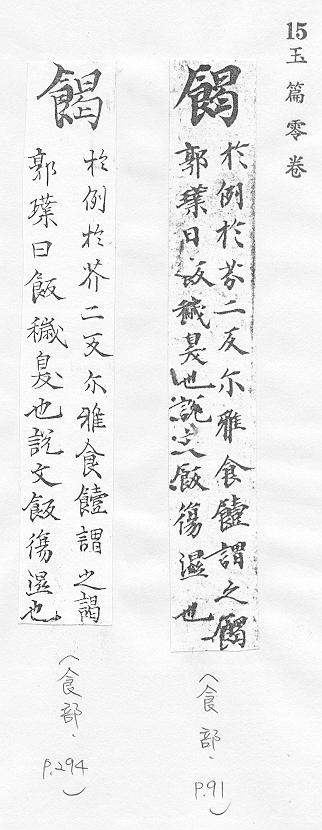 15玉篇零卷
餲
於例於芥二反尔雅食饐謂之餲
郭璞曰飯穢臭也說文飯傷湿也
(食部.p.91)
餲
於例於芥二反尔雅食饐謂之謁
郭璞曰飯穢臭也說文飯傷湿也
(食部.p.294)